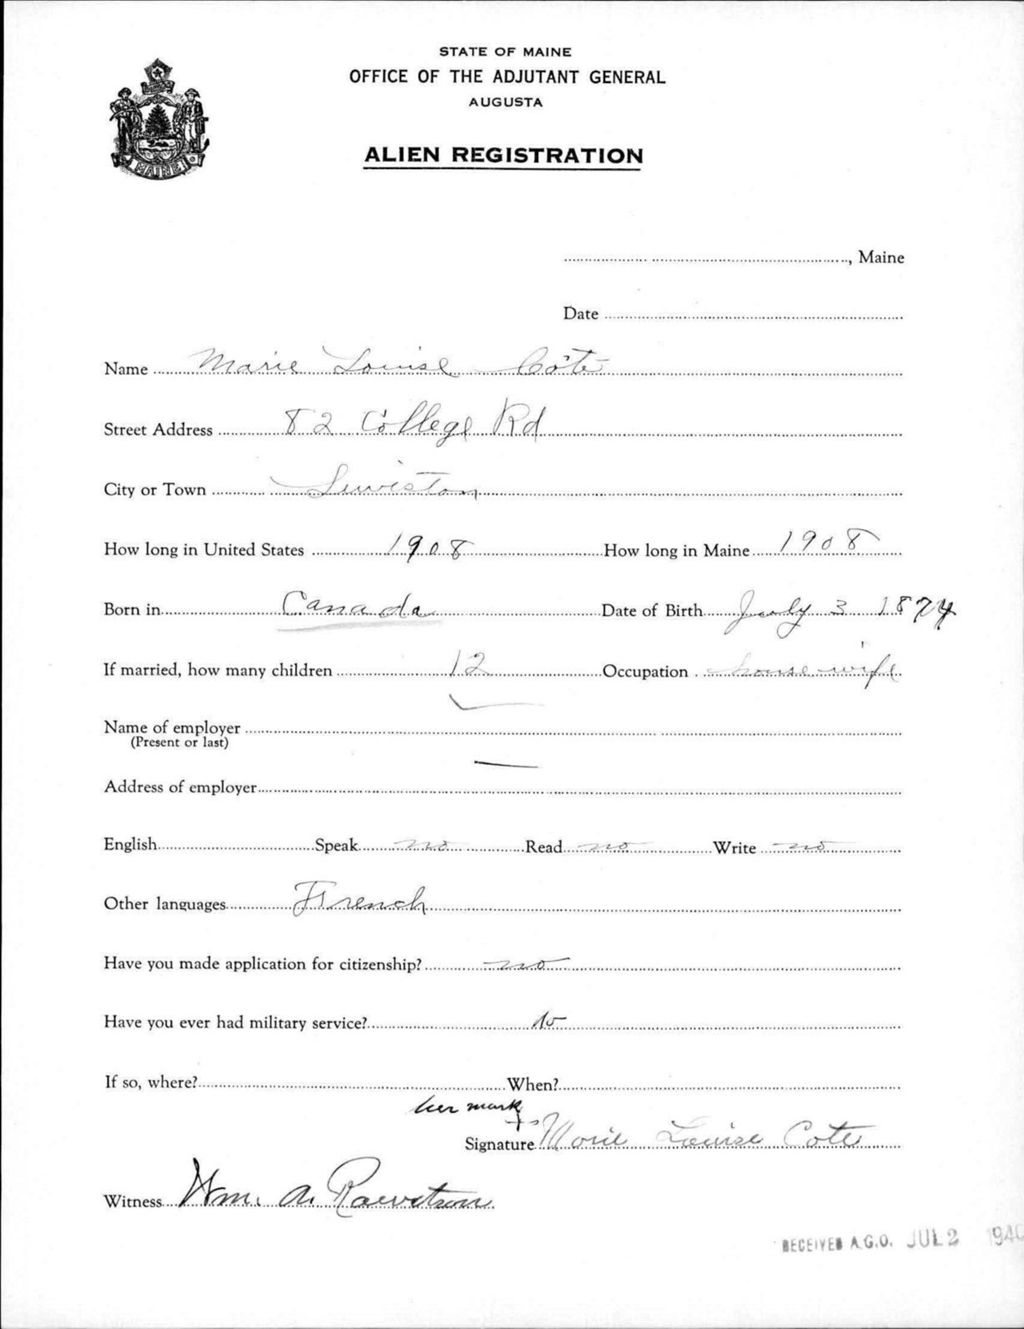 STATE OF MAINE
OFFICE OF THE ADJUTANT GENERAL
AUGUSTA
MAINE
ALIEN REGISTRATION
, Maine
Date
Name Marie Louise Côté
Street Address 82 College Rd
City or Town Lewiston
How long in United States 1908 How long in Maine 1908
Born in Canada Date of Birth July 3 1874
If married, how many children 12 Occupation house wife
Name of employer
(Present or last)
Address of employer
English Speak no Read no Write no
Other languages French
Have you made application for citizenship? no
Have you ever had military service? No
If so, where? When?
her mark
Signature + Marie Louise Cote
Witness Wm. A.
RECEIVED A.G.O. JUL 2 1940